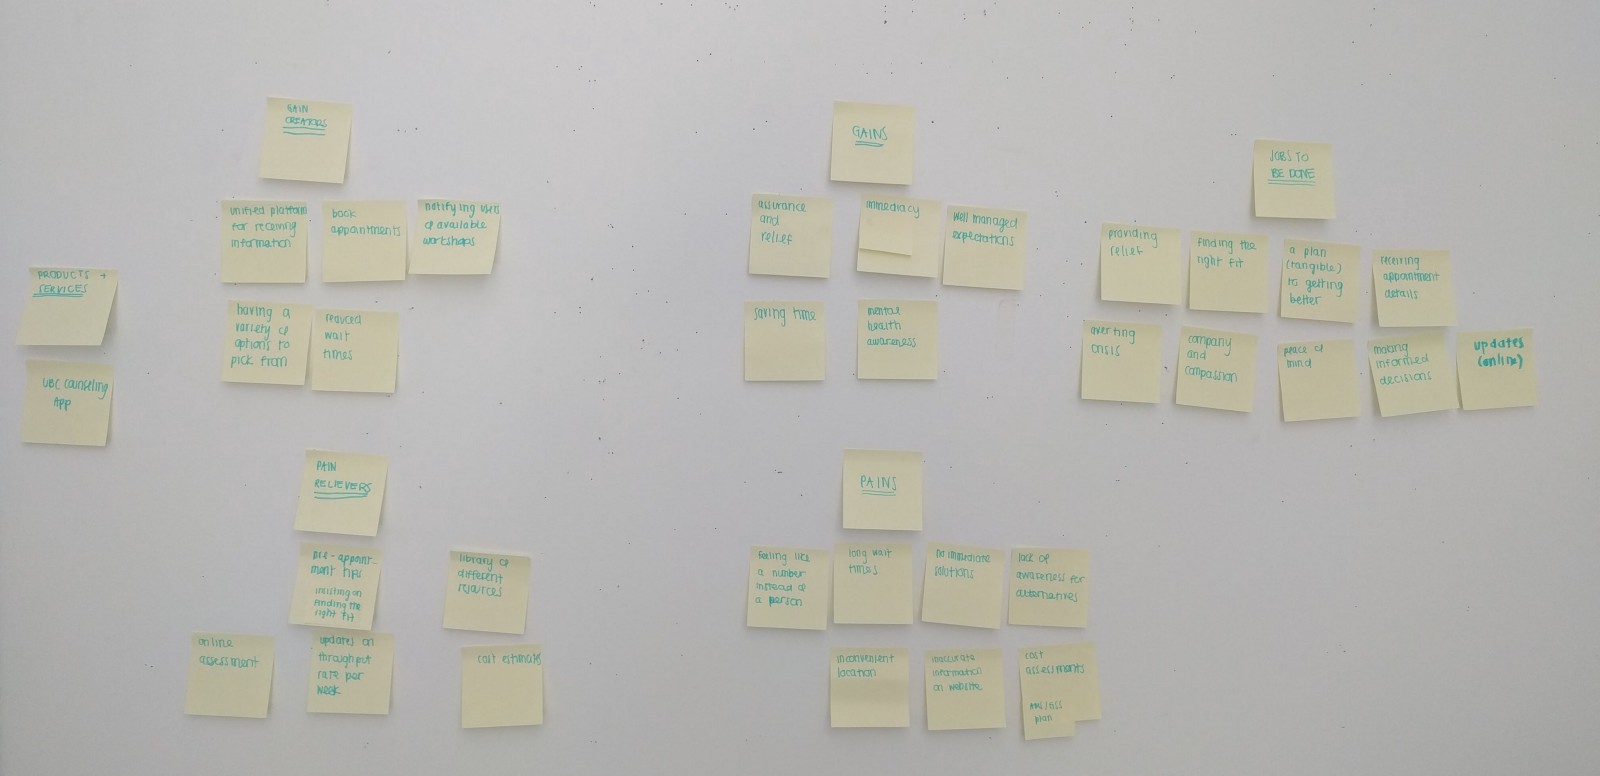 GAIN
CREATORS
unified platform
for receiving
information
book
appointments
notifying users
of available
workshops
having a
variety of
options to
pick from
reduced
wait
times
PRODUCTS +
SERVICES
UBC counseling
App
PAIN
RELIEVERS
pre-appoint-
ment tips
finding the
right fit
library of
different
resources
online
assessment
updates on
throughput
rate per
week
cost estimates
GAINS
assurance
and
relief
immediacy
well managed
expectations
saving time
mental
health
awareness
PAINS
feeling like
a number
instead of
a person
long wait
times
no immediate
solutions
lack of
awareness for
alternatives
inconvenient
location
inaccurate
information
on website
cost
assessments
plan
JOBS TO
BE DONE
providing
relief
finding the
right fit
a plan
(tangible)
to getting
better
receiving
appointment
details
averting
crisis
company
and
compassion
peace of
mind
making
informed
decisions
updates
(online)